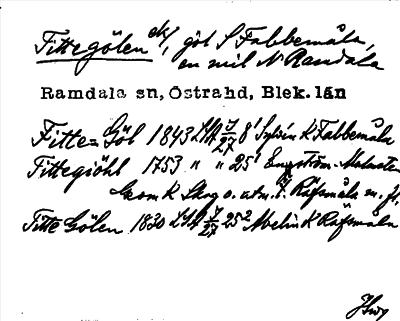 Fittegölen ek/, göl S Fabbemåla,
en mil N Ramdala
Ramdala sn, Östrahd, Blek. län
Fitte=Göl 1843 LSA 7/27 8¹ Sylvin K Fabbemåla
Fittegiöhl 1753 " " 25¹ Engström
Skog o. utm. t. Råfsmåla
Fitte Gölen 1830 LSA 7/27 25² Abelin K Rafsmåla